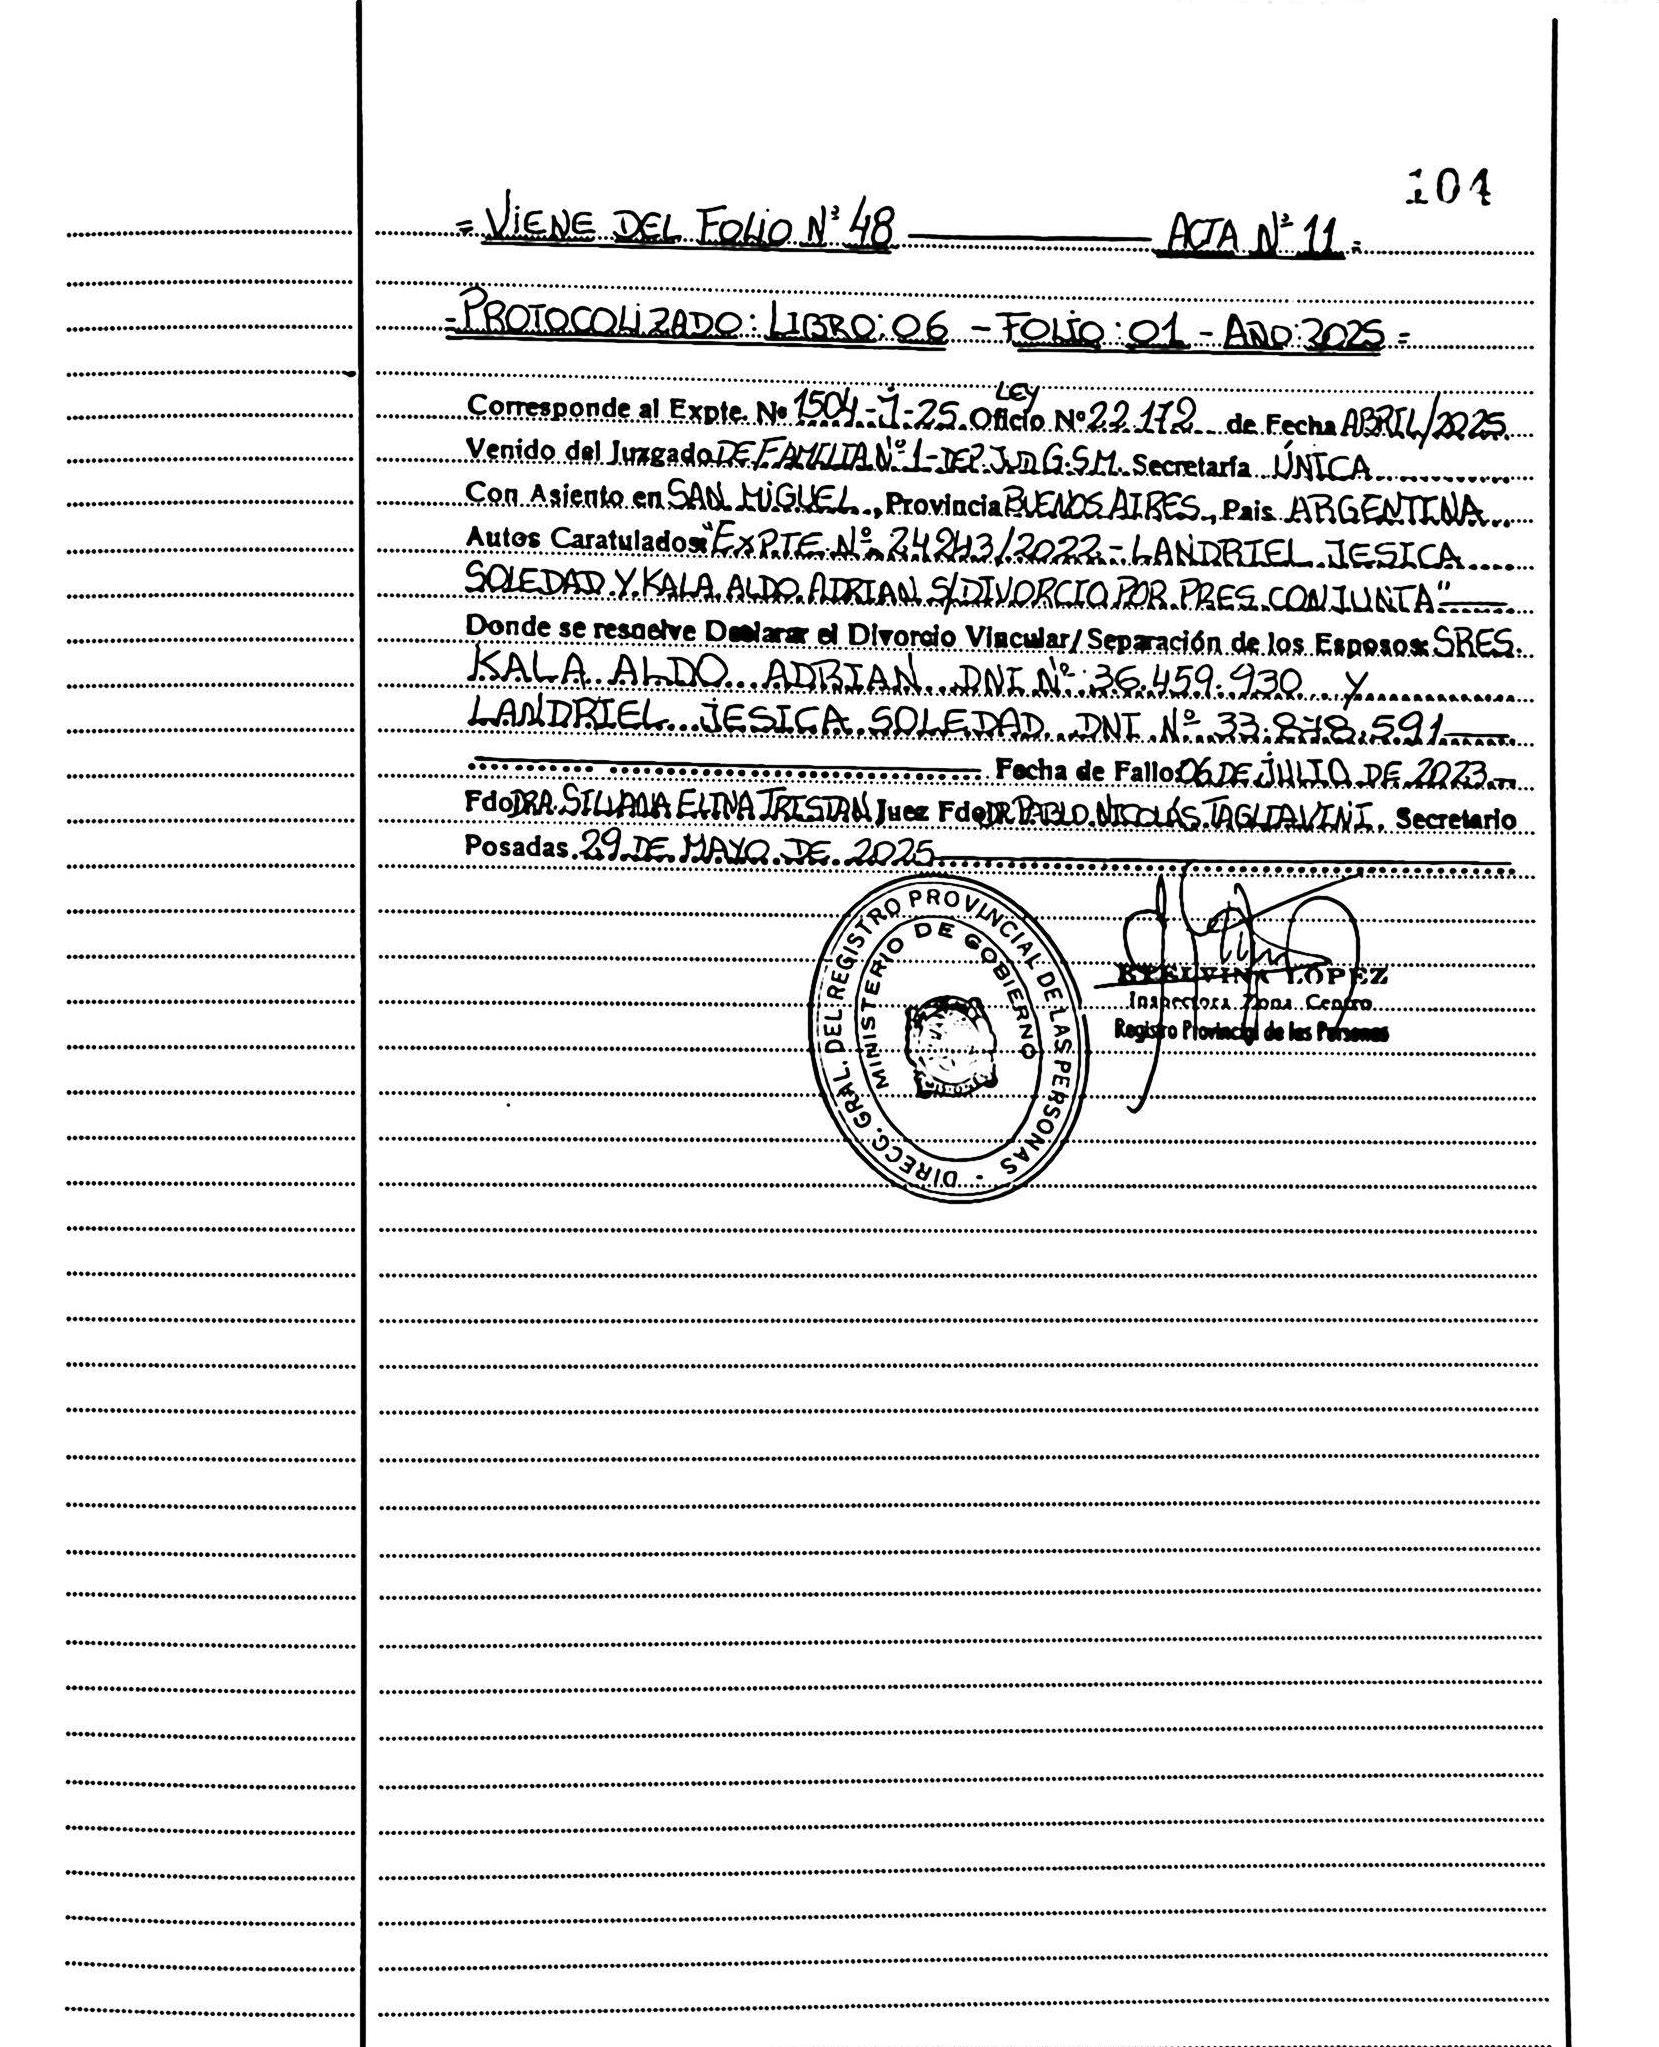 104
= VIENE DEL FOLIO Nº 48 ACTA Nº 11 =
= PROTOCOLIZADO: LIBRO: 06 - FOLIO: 01 - AÑO: 2025 =
LEY
Corresponde al Expte. Nº 1504-J-25 Oficio Nº 22.172 de Fecha ABRIL/2025
Venido del Juzgado DE FAMILIA Nº 1 - DEP. JUD G.S.M. Secretaría ÚNICA
Con Asiento en SAN MIGUEL, Provincia BUENOS AIRES, Pais ARGENTINA
Autos Caratulados: "EXPTE Nº 24243/2022 - LANDRIEL JESICA
SOLEDAD Y KALA ALDO ADRIAN S/DIVORCIO POR PRES. CONJUNTA"
Donde se resuelve Declarar el Divorcio Vincular/Separación de los Esposos: SRES.
KALA ALDO ADRIAN DNI Nº 36.459.930 Y
LANDRIEL JESICA SOLEDAD DNI Nº 33.878.591
Fecha de Fallo: 06 DE JULIO DE 2023
Fdo DRA. SILVANA ELINA TRISTAN Juez Fdo DR PABLO NICOLÁS TAGLIAVINI. Secretario
Posadas 29 DE MAYO DE 2025
DIRECC. GRAL. DEL REGISTRO PROVINCIAL DE LAS PERSONAS -
MINISTERIO DE GOBIERNO
ETELVINA LOPEZ
Inspectora Zona Centro
Registro Provincial de las Personas